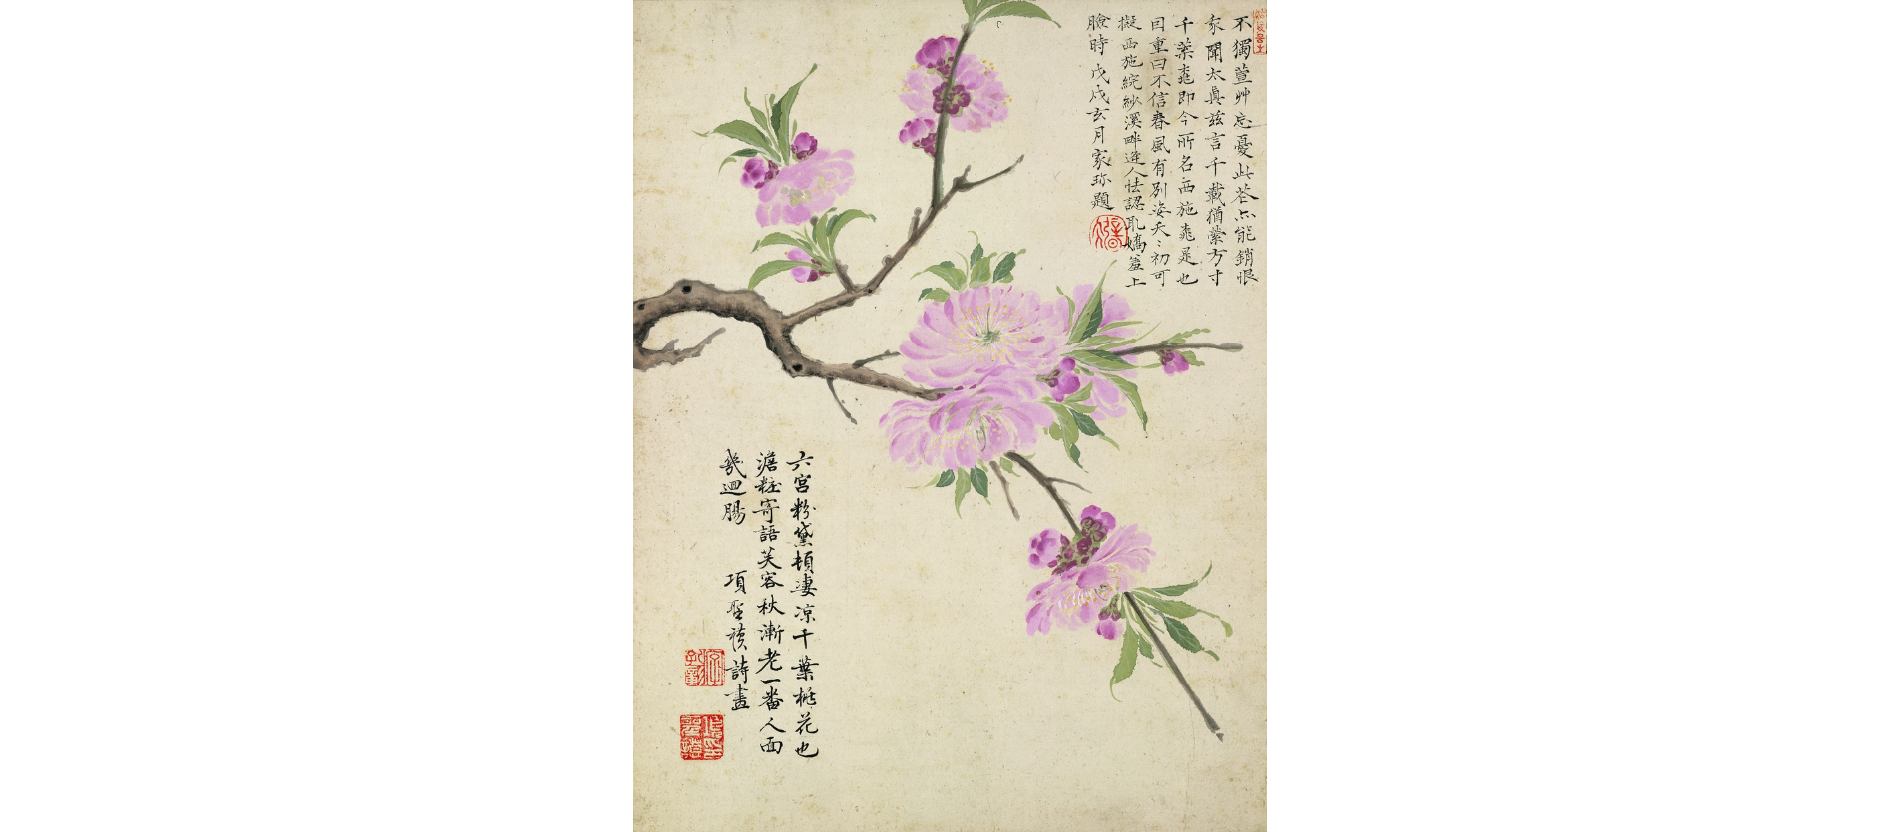 不獨萱艸忘憂此花亦能銷恨
家聞太真茲言千載猶縈方寸
千葉桃即今所名西施桃是也
因重曰不信春風有別姿夭〻初可
擬西施綄紗溪畔逢人怯認取嬌羞上
臉時 戊戌玄月家珎題
六宮粉黛頓凄凉千葉桃花也
澹粧寄語芙容秋漸老一番人面
幾迴腸 項聖謨詩畫